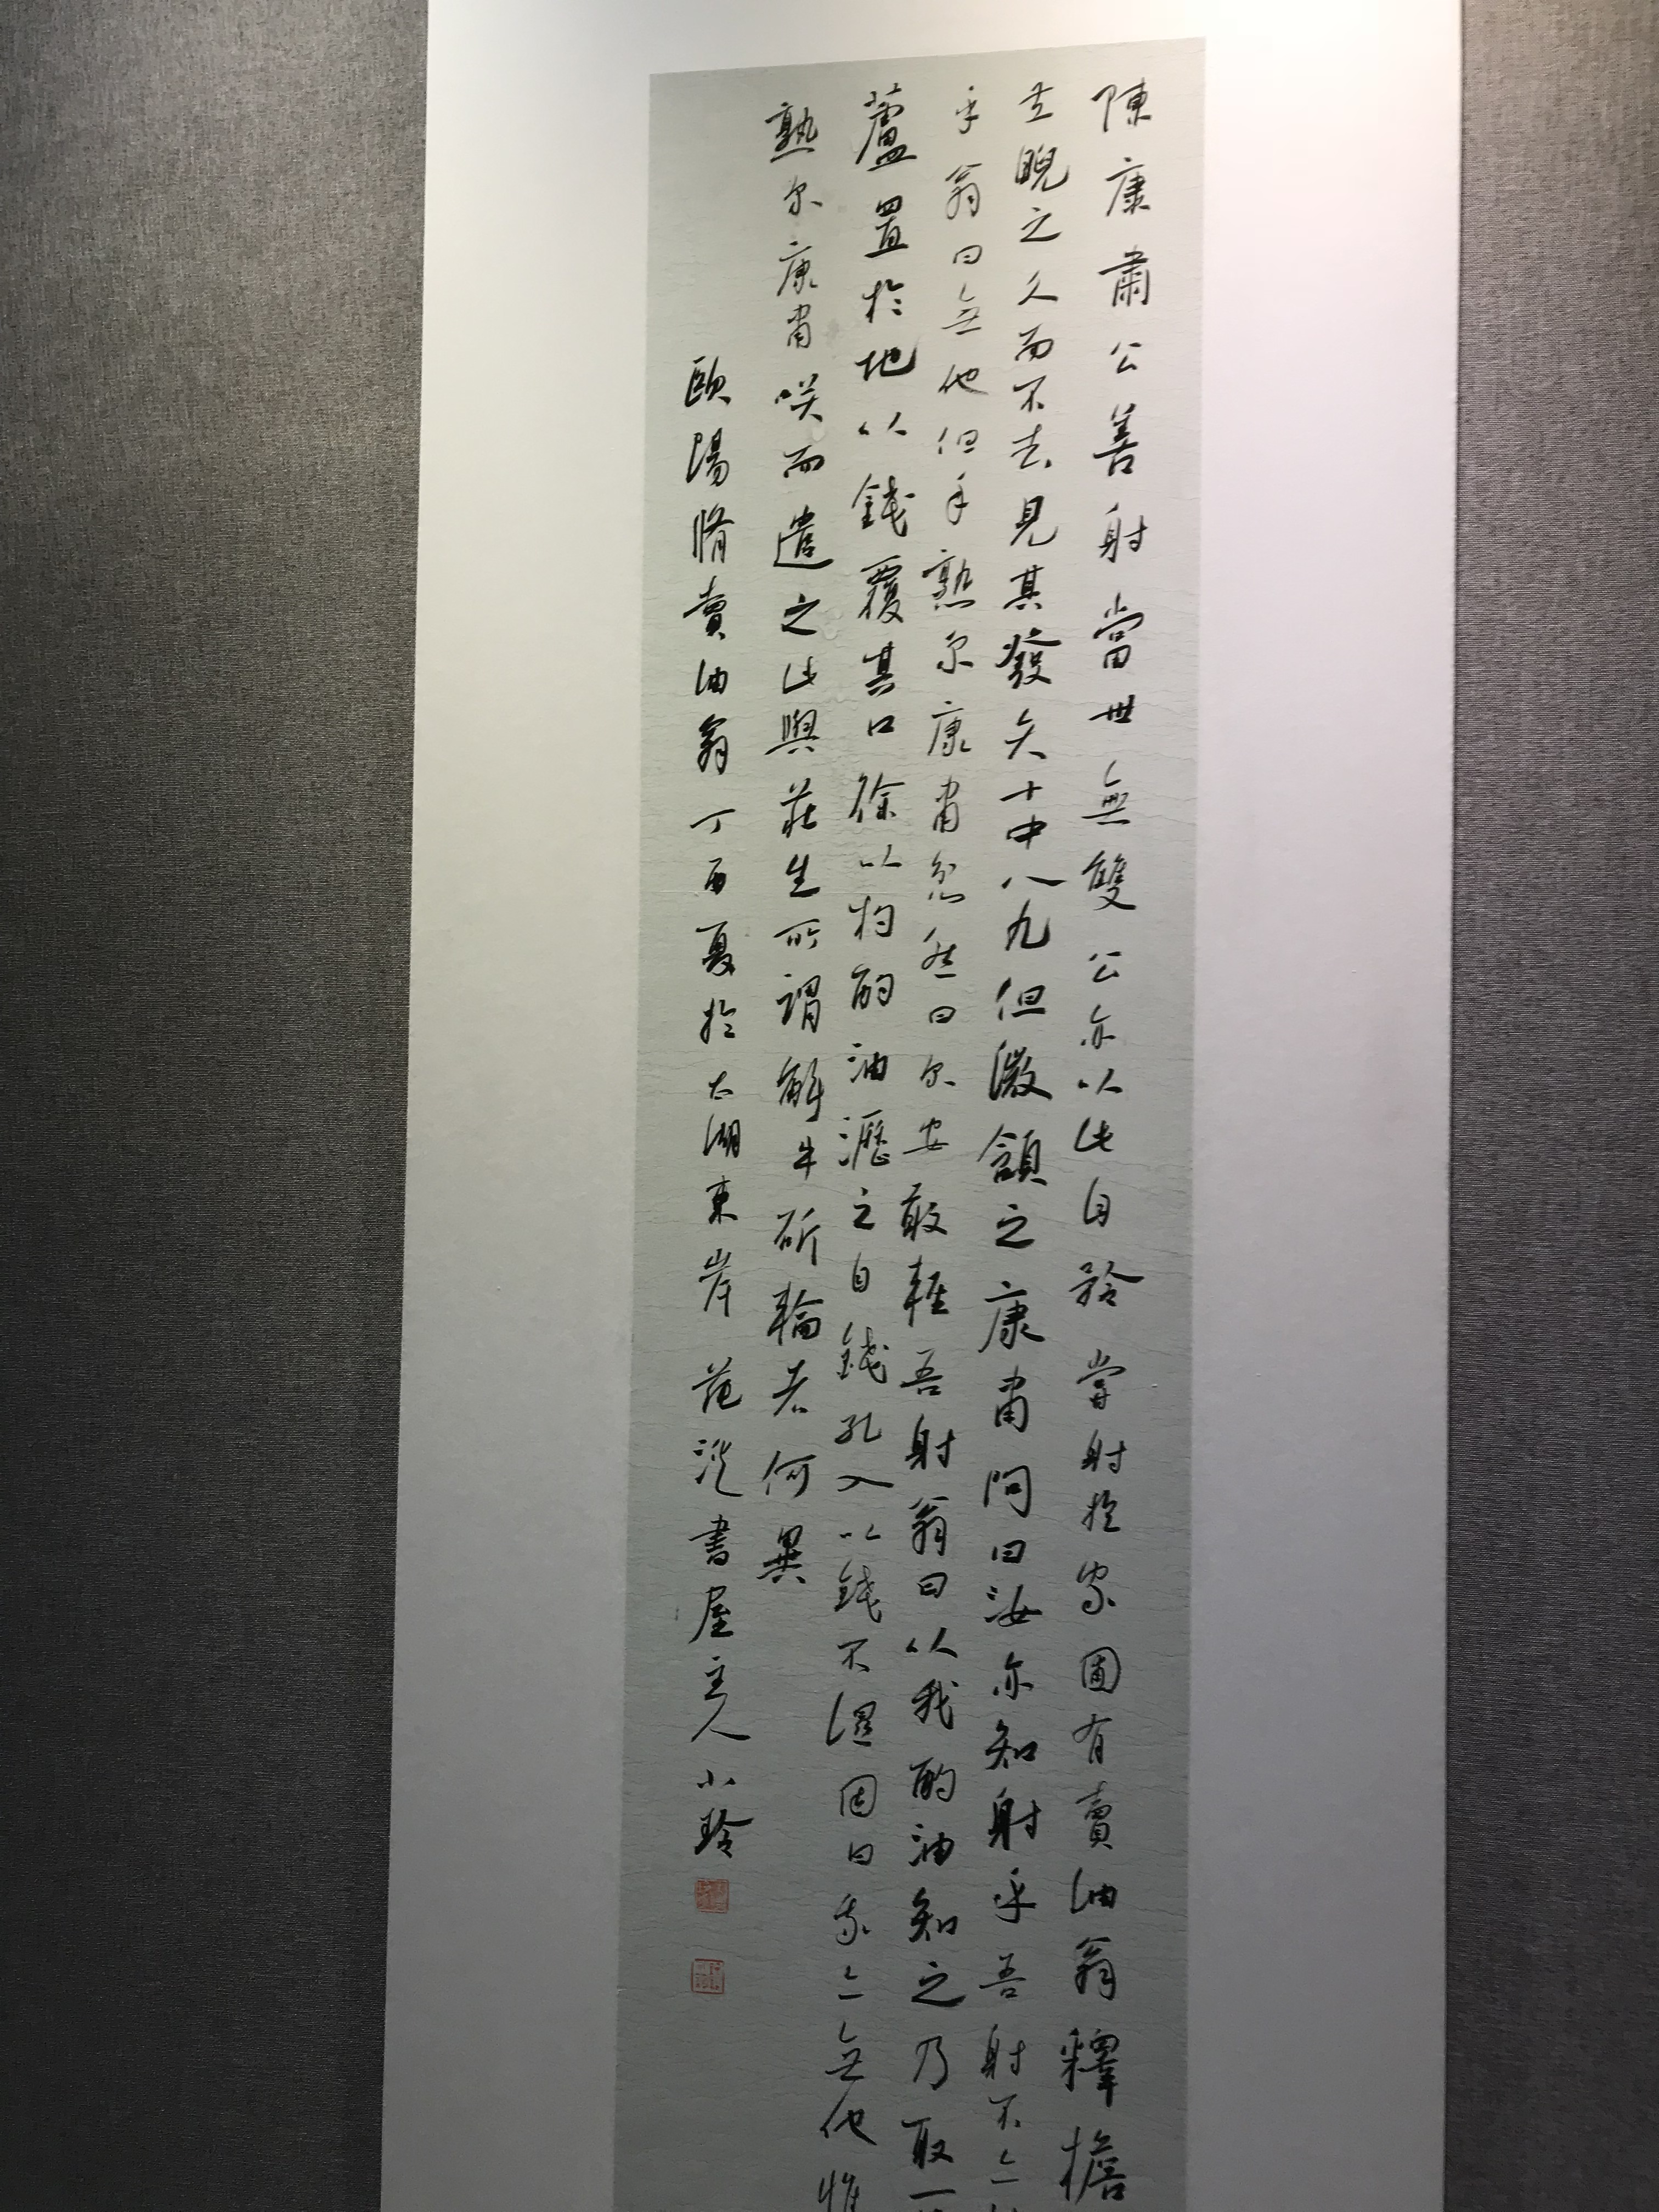 陳康肅公善射當世無雙公亦以此自矜嘗射於家圃有賣油翁釋擔
立睨之久而不去見其發矢十中八九但微頷之康肅問曰汝亦知射乎吾射不亦
乎翁曰無他但手熟尔康肅忿然曰尔安敢輕吾射翁曰以我酌油知之乃取一
蘆置於地以錢覆其口徐以杓酌油瀝之自錢孔入以錢不濕因曰我亦無他惟
熟尔康肅咲而遣之此與莊生所謂解牛斫輪者何異
歐陽脩賣油翁丁酉夏於太湖東岸范 書屋主人小玲